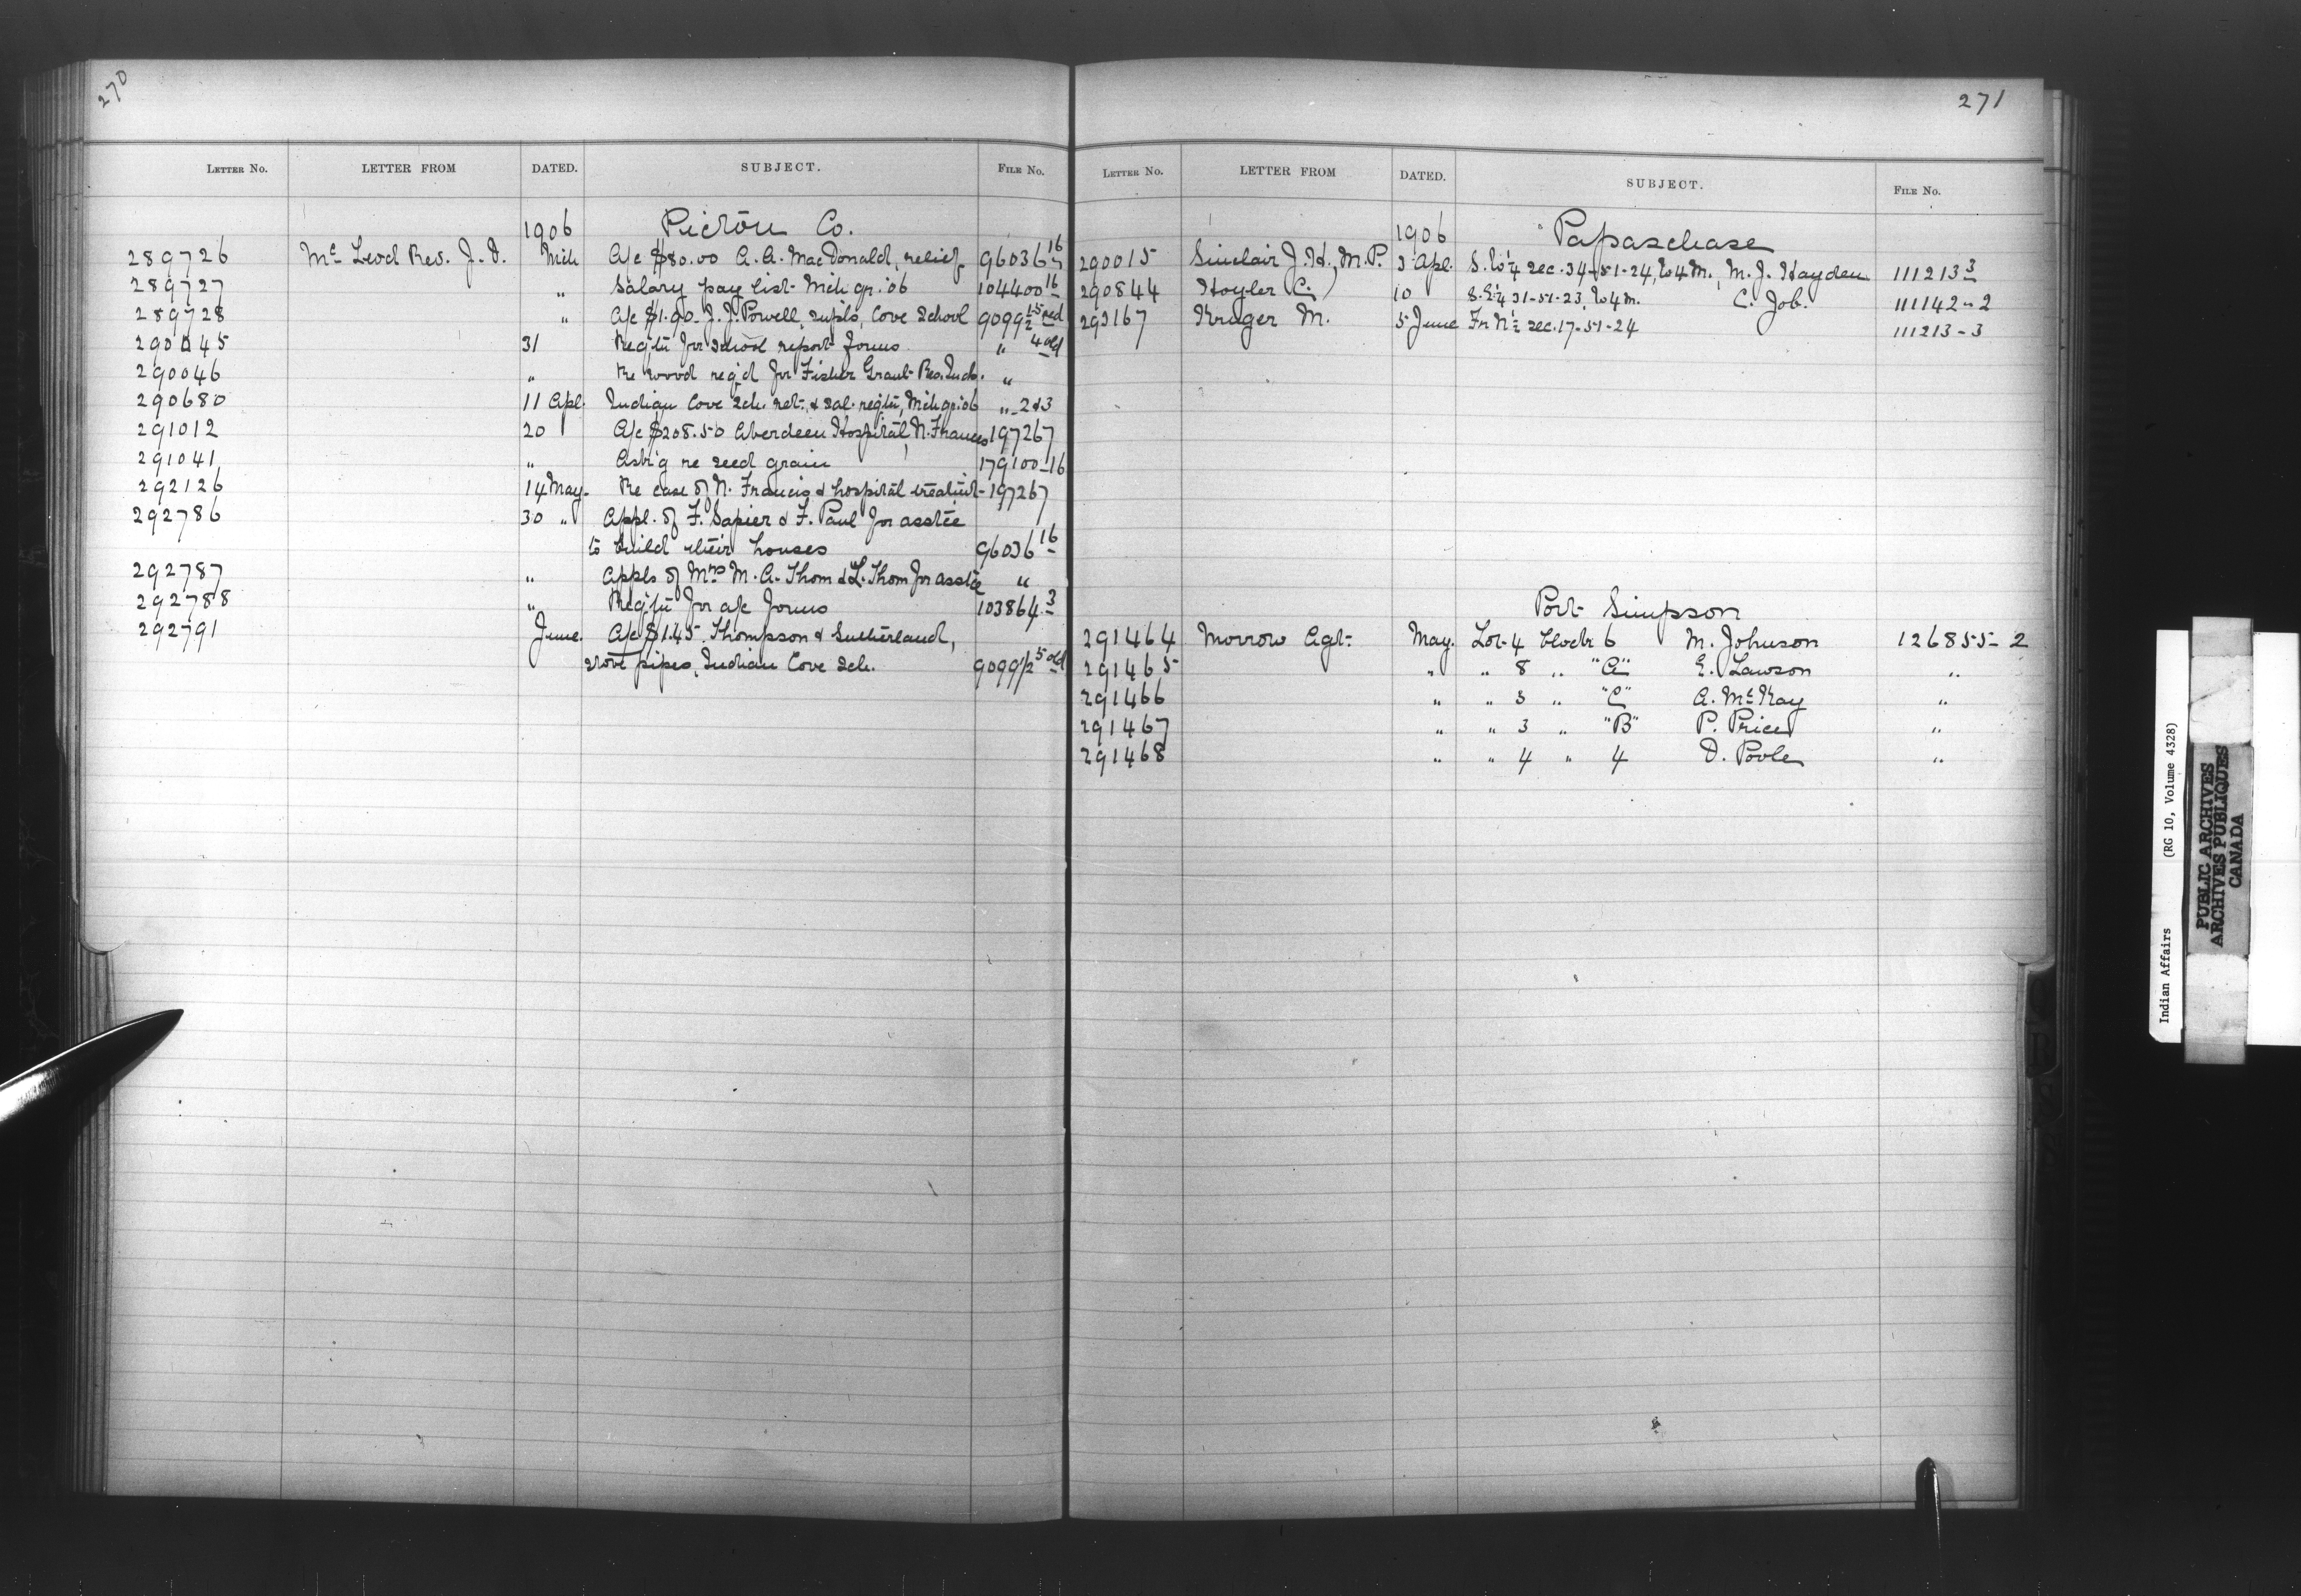 270
LETTER NO. LETTER FROM DATED. SUBJECT. FILE NO.
1906 Pictou Co.
289726 Mc Leod Rev. J. D. Mch A/c $80.00 A. A. MacDonald, relief 96036 16
289727 " Salary pay list Mch qr. '06 104400 16
289728 " A/c $1.90 J. J. Powell, supls, Cove School
290045 31 Reqtn for school report forms " 4 old
290046 " Re wood req'd for Fisher Grant Res. Inds. "
290680 11 Apl. Indian Cove Sch. ret. & sal. reqtn, Mch qr '06 " 2 & 3
291012 20 A/c $208.50 Aberdeen Hospital, N. Frances 197267
291041 " Ask'g re seed grain 179100-16
292126 14 May. Re case of N. Francis & hospital treatmt- 197267
292786 30 " Appl. of F. Sapier & F. Paul for asstce
to build their houses 96036 16
292787 " Appls of Mrs M. A. Thom & L. Thom for asstce "
292788 " Reqtn for a/c forms 103864.3
292791 June. A/c $1.45. Thompson & Sutherland,
stove pipes, Indian Cove Sch. 9099/2 5 old
271
LETTER NO. LETTER FROM DATED. SUBJECT. FILE NO.
1906 Papaschase
290015 Sinclair J. H., M.P. 3 Apl. S.W 1/4 sec. 34-51-24, W4M., M. J. Hayden 111213 3
290844 Hoyler C. 10 S.E 1/4 31-51-23, W4M. C. Job. 111142-2
293167 Kruger M. 5 June Fr N 1/2 sec. 17-51-24 111213-3
Port Simpson
291464 Morrow Agt- May. Lot 4 block 6 M. Johnson 126855-2
291465 " " 8 " "A" E. Lawson "
291466 " " 3 " "C" A. McKay "
291467 " " 3 " "B" P. Price "
291468 " " 4 " 4 D. Poole "
Indian Affairs (RG 10, Volume 4328)
PUBLIC ARCHIVES
ARCHIVES PUBLIQUES
CANADA